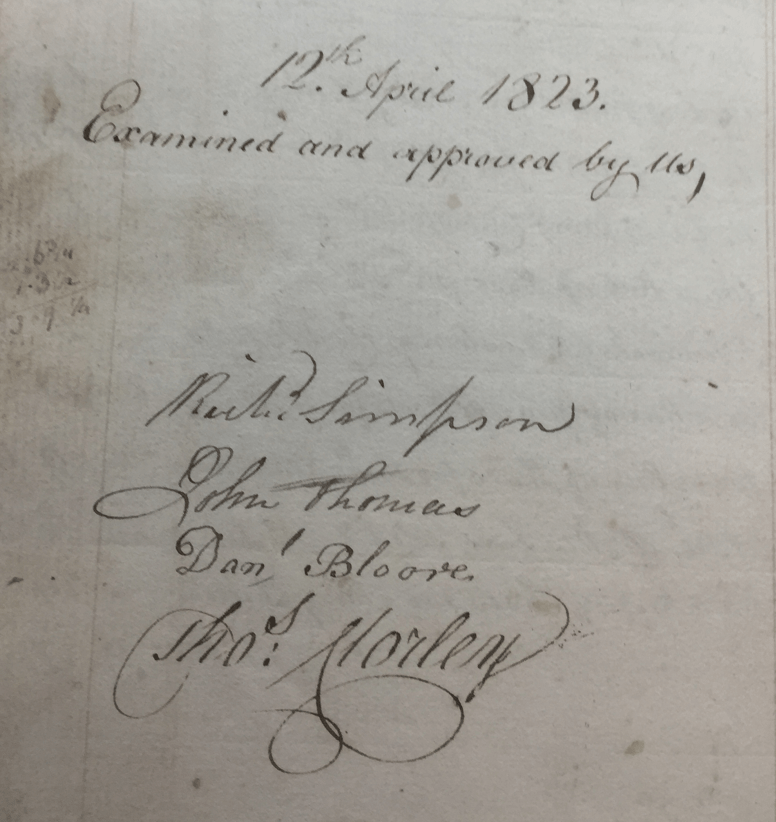 12th April 1823.
Examined and approved by Us,
Richd Simpson
John Thomas
Danl Bloore
Thos Morley